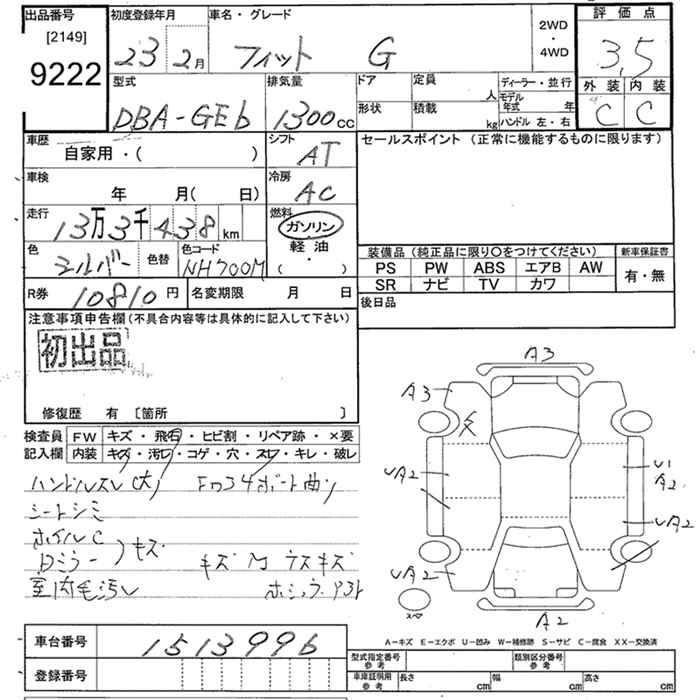 出品番号
[2149]
9222
初度登録年月
23 2月
車名・グレード
フィット G
2WD
・
4WD
評価点
3,5
外装 内装
C C
型式
DBA-GE6
排気量
1300cc
ドア
定員
人
ディーラー・並行
モデル年式 年
形状
積載
kg
ハンドル 左・右
車歴
自家用・( )
シフト
AT
セールスポイント (正常に機能するものに限ります)
車検
年 月( 日)
冷房
AC
走行
13万3千438km
燃料
ガソリン
軽油
( ・ )
色
シルバー
色替
色コード
NH700M
装備品 (純正品に限り〇をつけてください)
新車保証書
PS PW ABS エアB AW
有・無
SR ナビ TV カワ
R券
10810円
名変期限 月 日
後日品
注意事項申告欄(不具合内容等は具体的に記入して下さい)
初出品
修復歴 有 〔箇所 〕
検査員
記入欄
FW キズ・飛石・ヒビ割・リペア跡・×要
内装 キズ・汚レ・コゲ・穴・スレ・キレ・破レ
ハンドルスレ(大)
シートシミ
ホイルC
Dミラー
キズ
室内毛汚レ
キズ
ウスキズ
A3
A3
UA2
U1
A2
UA2
UA2
A2
スペア
A-キズ E-エクボ U-凹み W-補修跡 S-サビ C-腐食 XX-交換済
車台番号
1513996
型式指定番号
参考
類別区分番号
参考
登録番号
車庫証明用
参考
長さ cm
幅 cm
高さ cm